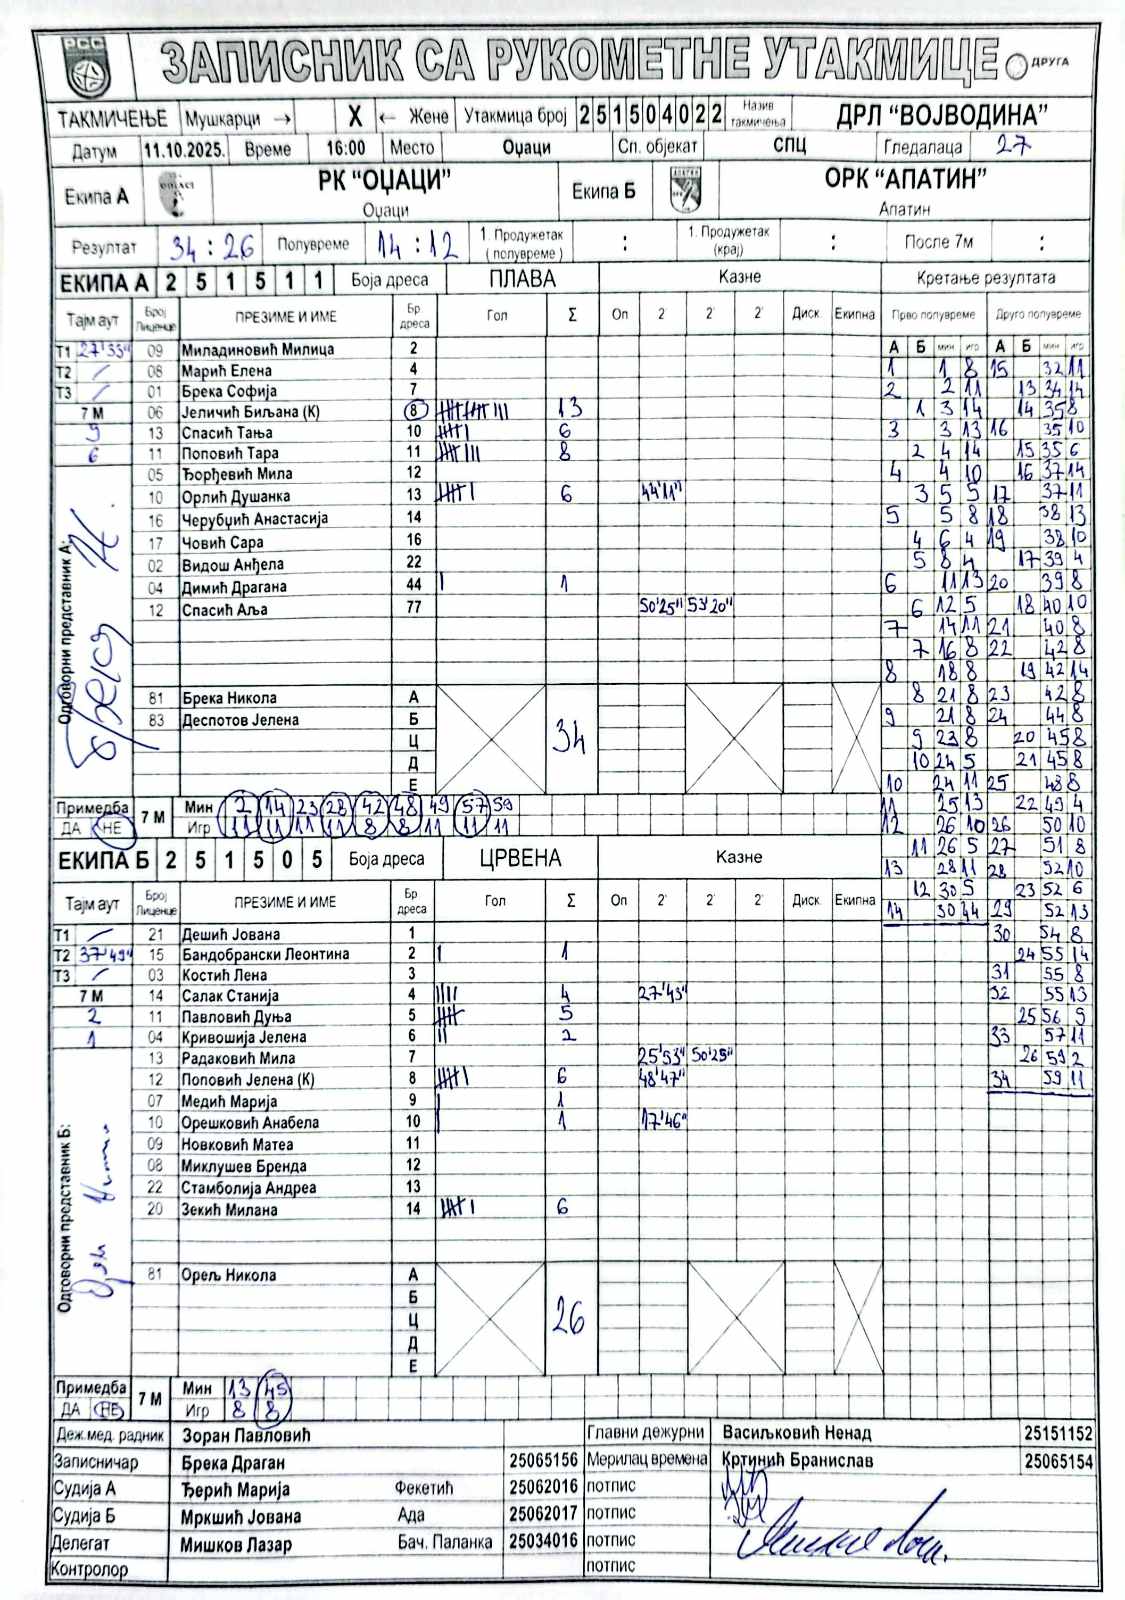 РСС
ЗАПИСНИК СА РУКОМЕТНЕ УТАКМИЦЕ ДРУГА
ТАКМИЧЕЊЕ Мушкарци → X ← Жене Утакмица број 2 5 1 5 0 4 0 2 2 Назив такмичења ДРЛ “ВОЈВОДИНА”
Датум 11.10.2025. Време 16:00 Место Оџаци Сп. објекат СПЦ Гледалаца 27
Екипа А РК “ОЏАЦИ” Екипа Б ОРК “АПАТИН”
Оџаци Апатин
Резултат 34 : 26 Полувреме 14 : 12 1. Продужетак (полувреме) : 1. Продужетак (крај) : После 7м :
ЕКИПА А 2 5 1 5 1 1 Боја дреса ПЛАВА Казне Кретање резултата
Тајм аут Број Лиценце ПРЕЗИМЕ И ИМЕ Бр дреса Гол Σ Оп 2' 2' 2' Диск. Екипна Прво полувреме Друго полувреме
А Б мин игр А Б мин игр
Т1 27'33" 09 Миладиновић Милица 2
Т2 / 08 Марић Елена 4
Т3 / 01 Брека Софија 7
7 М 06 Јеличић Биљана (К) 8 13
9 13 Спасић Тања 10 6
6 11 Поповић Тара 11 8
05 Ђорђевић Мила 12
10 Орлић Душанка 13 6 44'11"
16 Черубџић Анастасија 14
17 Човић Сара 16
02 Видош Анђела 22
04 Димић Драгана 44 1
12 Спасић Аља 77 50'25" 53'20"
81 Брека Никола А
83 Деспотов Јелена Б
Ц
Д
Е
34
Одговорни представник А:
Примедба ДА НЕ 7 М Мин 2 14 23 28 42 48 49 57 59
Игр 11 11 11 11 8 8 11 11 11
1 1 8 15 32 11
2 2 11 13 34 14
1 3 14 14 35 8
3 3 13 16 35 10
2 4 14 15 35 6
4 4 10 16 37 14
3 5 5 17 37 11
5 5 8 18 38 13
4 6 4 19 38 10
5 8 4 17 39 4
6 11 13 20 39 8
6 12 5 18 40 10
7 14 11 21 40 8
7 16 8 22 42 8
8 18 8 19 42 14
8 21 8 23 42 8
9 21 8 24 44 8
9 23 8 20 45 8
10 24 5 21 45 8
10 24 11 25 48 8
11 25 13 22 49 4
12 26 10 26 50 10
11 26 5 27 51 8
13 28 11 28 52 10
12 30 5 23 52 6
14 30 44 29 52 13
30 54 8
24 55 14
31 55 8
32 55 13
25 56 9
33 57 11
26 59 2
34 59 11
ЕКИПА Б 2 5 1 5 0 5 Боја дреса ЦРВЕНА Казне
Тајм аут Број Лиценце ПРЕЗИМЕ И ИМЕ Бр дреса Гол Σ Оп 2' 2' 2' Диск. Екипна
Т1 / 21 Дешић Јована 1
Т2 37'49" 15 Бандобрански Леонтина 2 1
Т3 / 03 Костић Лена 3
7 М 14 Салак Станија 4 4 27'43"
2 11 Павловић Дуња 5 5
1 04 Кривошија Јелена 6 2
13 Радаковић Мила 7 25'53" 50'25"
12 Поповић Јелена (К) 8 6 48'47"
07 Медић Марија 9 1
10 Орешковић Анабела 10 1 17'46"
09 Новковић Матеа 11
08 Миклушев Бренда 12
22 Стамболија Андреа 13
20 Зекић Милана 14 6
81 Орељ Никола А
Б
Ц
Д
Е
26
Одговорни представник Б:
Примедба ДА НЕ 7 М Мин 13 45
Игр 8 8
Деж.мед. радник Зоран Павловић Главни дежурни Васиљковић Ненад 25151152
Записничар Брека Драган 25065156 Мерилац времена Кртинић Бранислав 25065154
Судија А Ђерић Марија Фекетић 25062016 потпис
Судија Б Мркшић Јована Ада 25062017 потпис
Делегат Мишков Лазар Бач. Паланка 25034016 потпис
Контролор потпис